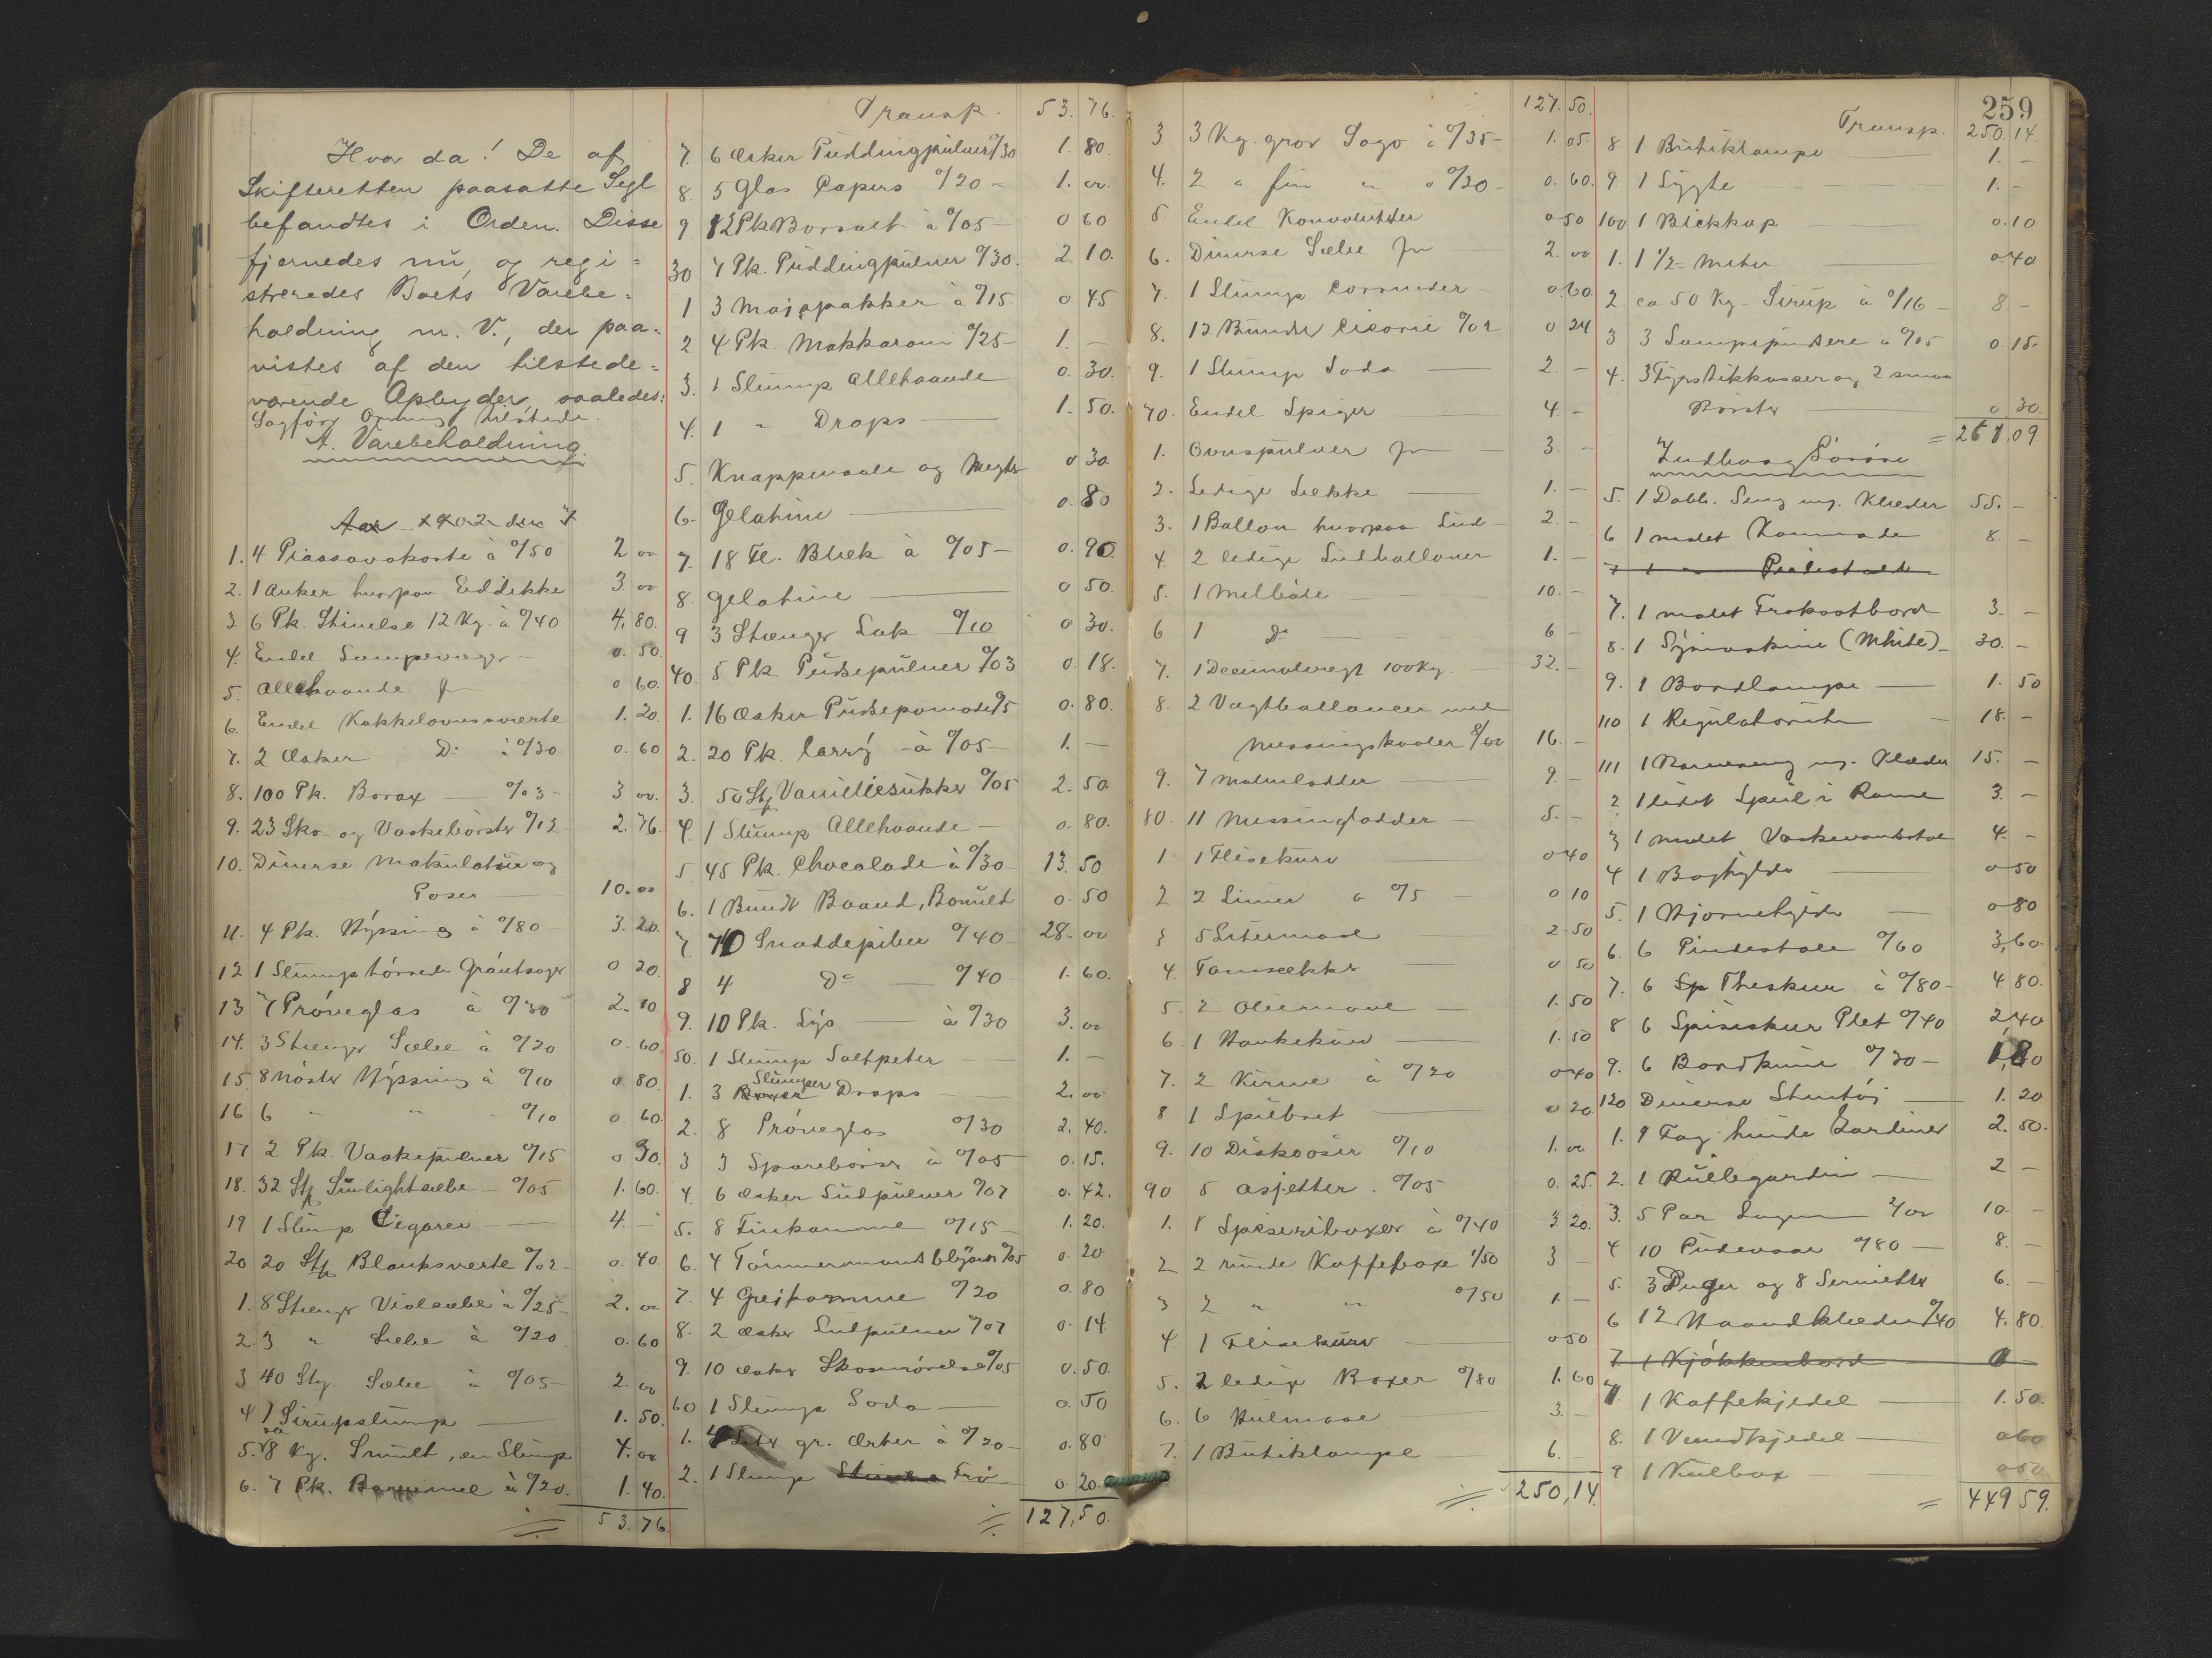 Hvor da! De af
Skifteretten paasatte Segl
befandtes i Orden. Disse
fjernedes nu og regi=
streredes Boets Varebe=
holdning m. V., der paa=
vistes af den tilstede=
værende Opbyder saaledes:
Sagfører tilstede.
A. Varebeholdning
Aar 1902 den
1. 4 Piassavakoste à 0/50 2 00
2. 1 Anker hvorpaa Eddikke 3 00
3. 6 Pk. Stivelse 12 Kg. à 0/40 4,80.
4. Endel Lampevæger 0.50.
5. Allehaande 0 60.
6. Endel Kakkelovnssværte 1.20.
7. 2 Æsker Do à 0/30 0.60
8. 100 Pk. Borax 0/03 3 00.
9. 23 Sko- og Vaskebørster 0/12 2.76.
10. Diverse Makulatur og
Poser 10.00
11. 4 Pk. Hyssing à 0/80 3.20.
12 1 Slump tørrede Grøntsager 0 20.
13 7 Prøveglas à 0/30 2.10.
14. 3 Stænger Sæbe à 0/20 0.60.
15. 8 Nøster Hyssing à 0/10 0.80.
16 6 " " 0/10 0 60.
17 2 Pk. Vaskepulver 0/15 0 30.
18. 32 Stk Sunlightsæbe 0/05 1.60.
19 1 Slump Cigarer 4. -
20 20 Stk Blanksværte 0/02 0.40.
1. 8 Stænger Violsæbe à 0/25 2.00
2. 3 " Sæbe à 0/20 0.60
3 40 Stk Sæbe à 0/05 2.00
4 1 Sirupslump 1.50.
5. 8 Kg. Smult, en Slump 4.00
6. 7 Pk. à 0/20. 1.40.
53.76.
Transp. 53.76.
7. 6 Æsker Puddingpulver 0/30 1.80.
8 5 Glas Capers 0/20 1.00.
9 12 Pk Borsalt à 0/05 0 60
30 7 Pk. Puddingpulver 0/30. 2.10.
1 3 Maispakker à 0/15 0.45
2 4 Pk. Makkaroni 0/25 1. -
3. 1 Slump Allehaande 0.30.
4. 1 " Drops 1.50.
5. Knappenaale og Hægter 0 30.
6. Gelatine 0.80
7. 18 Fl. Blæk à 0/05 0.90.
8. Gelatine 0 50.
9 3 Stænger Lak 0/10 0 30.
40. 5 Pk. Pudsepulver 0/03 0.18.
1. 16 Æsker Pudsepomade 0/5 0.80.
2. 20 Pk. Carry à 0/05 1. -
3. 50 Stk Vanilliesukker 0/05 2.50.
4. 1 Slump Allehaande 0.80.
5 45 Pk. Chocolade à 0/30 13.50.
6. 1 Bundt Baand, Bomuld 0.50
7. 70 Snaddepiber 0/40 28.00
8 4 Do 0/40 1.60.
9. 10 Pk. Lys à 0/30 3.00
50. 1 Slump Saltpeter 1. -
1. 3 Slumper Drops 2.00
2. 8 Prøveglas 0/30 2.40.
3 3 Sparebøsser à 0/05 0.15.
4. 6 Æsker Ludpulver 0/07 0.42.
5. 8 Finkamme 0/15 1.20.
6. 4 Tømmermandsblyanter 0/05 0.20
7. 4 Greikamme 0/20 0.80
8. 2 Æsker Ludpulver 0/07 0.14.
9. 10 Æsker Skosmørelse 0/05 0.50.
60 1 Slump Soda 0.50
1. 4 Liter gr. Ærter à 0/20 0.80
2. 1 Slump Frø 0.20.
127,50.
127.50.
3. 3 Kg. grov Sago à 0/35 1.05.
4. 2 " fin " " 0/30 0.60.
5. Endel Konvolutter 0 50
6. Diverse Sæbe 2.00
7. 1 Slump Corrender 0.60.
8. 12 Bundter Cicorie 0/02 0 24
9. 1 Slump Soda 2 -
70. Endel Spiger 4. -
1. Ovnspulver 3. -
2. Ledige Sække 1. -
3. 1 Ballon hvorpaa Lud 2. -
4. 2 ledige Ludballoner 1. -
5. 1 Melbøle 10. -
6 1 Do 6. -
7. 1 Decimalvægt 100 Kg. 32. -
8. 2 Vægtballancer med
Messingskaaler 8/00 16. -
9. 7 Malmlodder 9. -
80. 11 Messinglodder 5. -
1 1 Flisekurv 0 40
2 2 Limer à 0/5 0 10
3 5 Litermaal 2-50
4. Tomsækker 0 50
5. 2 Oliemaal 1.50
6 1 Hankekurv 1.50
7. 2 Kurve à 0/20 0 40
8 1 Spilbret 0 20
9. 10 Diskooser 0/10 1.00
90 5 Asjetter. 0/05 0.25.
1. 8 Spiseriboxer à 0/40 3 20.
2 2 runde Kaffeboxe 1/50 3 -
3 2 " " 0/50 1 -
4. 1 Flisekurv 0 50
5. 2 ledige Boxer 0/80 1.60
6. 6 Hulmaal 3. -
7. 1 Butiklampe 6. -
250,14.
259
Transp. 250.14.
8. 1 Butiklampe 1. -
9. 1 Lygte 1. -
100 1 Blikkop 0.10
1. 1 1/2 Meter 0.40
2. ca 50 Kg. Sirup à 0/16 8. -
3 3 Lampepudsere à 0/05 0.15.
4. 3 Fyrstikkasser og 2 smaa
Børster 0 30.
= 261,09.
Indbo og Løsøre
5. 1 Dobb. Seng m. Klæder 55. -
6 1 malet Kommode 8. -
7 1 " Pidestald
7. 1 malet Frokostbord 3. -
8. 1 Symaskine (White) 30. -
9. 1 Bordlampe 1. 50
110 1 Regulatoruhr 18. -
111 1 Barneseng m. Klæder 15. -
2 1 lidet Speil i Rame 3. -
3 1 malet Vaskevandstol 4. -
4 1 Boghylde 0 50
5. 1 Hjørnehylde 0 80
6. 6 Pindestole 0/60 3,60.
7. 6 Sp Theskeer à 0/80 4 80.
8 6 Spiseskeer Plet 0/40 2,40
9. 6 Bordknive 0/30 1,80
120 Diverse Stentøi 1. 20
1. 9 Fag hvide Gardiner 2. 50.
2. 1 Rullegardin 2 -
3. 5 Par Lagen 2/00 10. -
4 10 Pudevaar 0/80 8. -
5. 3 Duger og 8 Servietter 6. -
6 12 Haandklæder 0/40 4.80.
7 1 Kjøkkenbord
7. 1 Kaffekjedel 1.50.
8. 1 Vandkjedel 0 60
9 1 Kulbox 0 50
= 449 59.